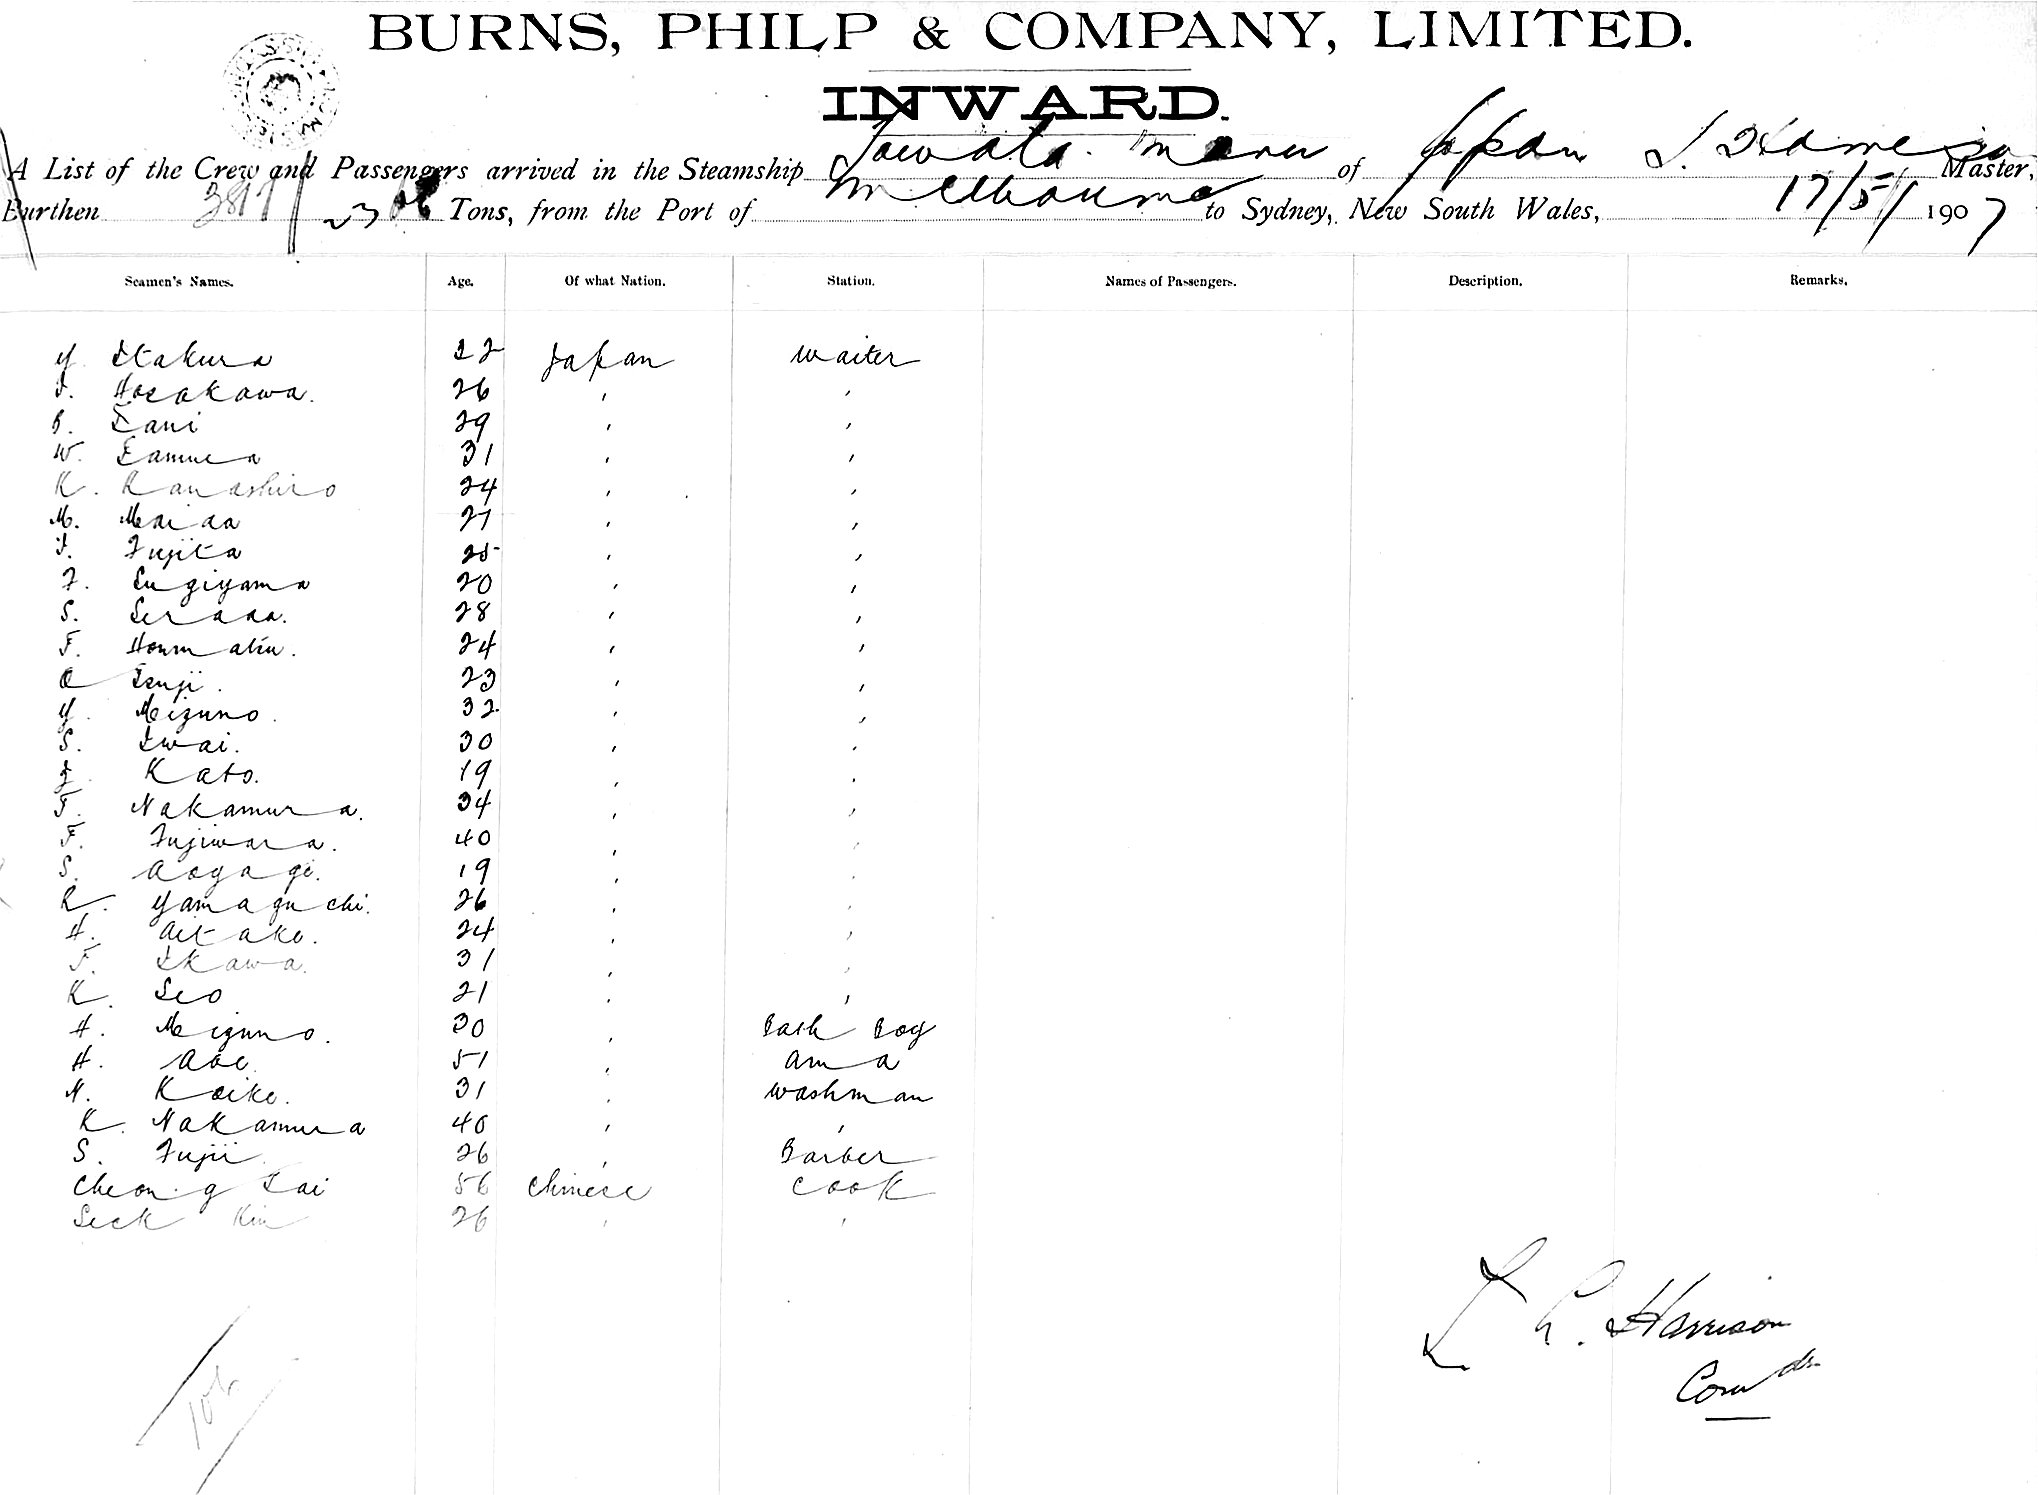 BURNS, PHILP & COMPANY, LIMITED.
INWARD.
A List of the Crew and Passengers arrived in the Steamship Yawata Maru of Japan Master,
Burthen 3817 Tons, from the Port of Melbourne to Sydney, New South Wales, 17/5/1907
Seamen's Names. Age. Of what Nation. Station. Names of Passengers. Description. Remarks.
Y Itakura 22 Japan waiter
Hosokawa. 26 ' '
Tani 29 ' '
W. Tamura 31 ' '
K. Kanashiro 24 ' '
M. Maida 27 ' '
Fujita 25 ' '
Sugiyama 20 ' '
S. Serada. 28 ' '
T. 24 ' '
Tsuji. 23 ' '
Y. Mizuno. 32 ' '
S. Iwai. 30 ' '
Kato. 19 ' '
T. Nakamura. 34 ' '
T. Fujiwara. 40 ' '
S. Aoyagi. 19 ' '
R. Yamaguchi. 26 ' '
H. Aitake. 24 ' '
T. Ikawa. 31 ' '
K. Seo 21 ' '
H. Mizuno. 30 ' Bath Boy
H. Abe. 51 ' ama
N. Koike. 31 ' washman
K. Nakamura 40 ' '
S. Fujii 26 ' Barber
Cheong Tai 56 Chinese Cook
Seck Kin 26 ' '
Harrison
Comdr
106